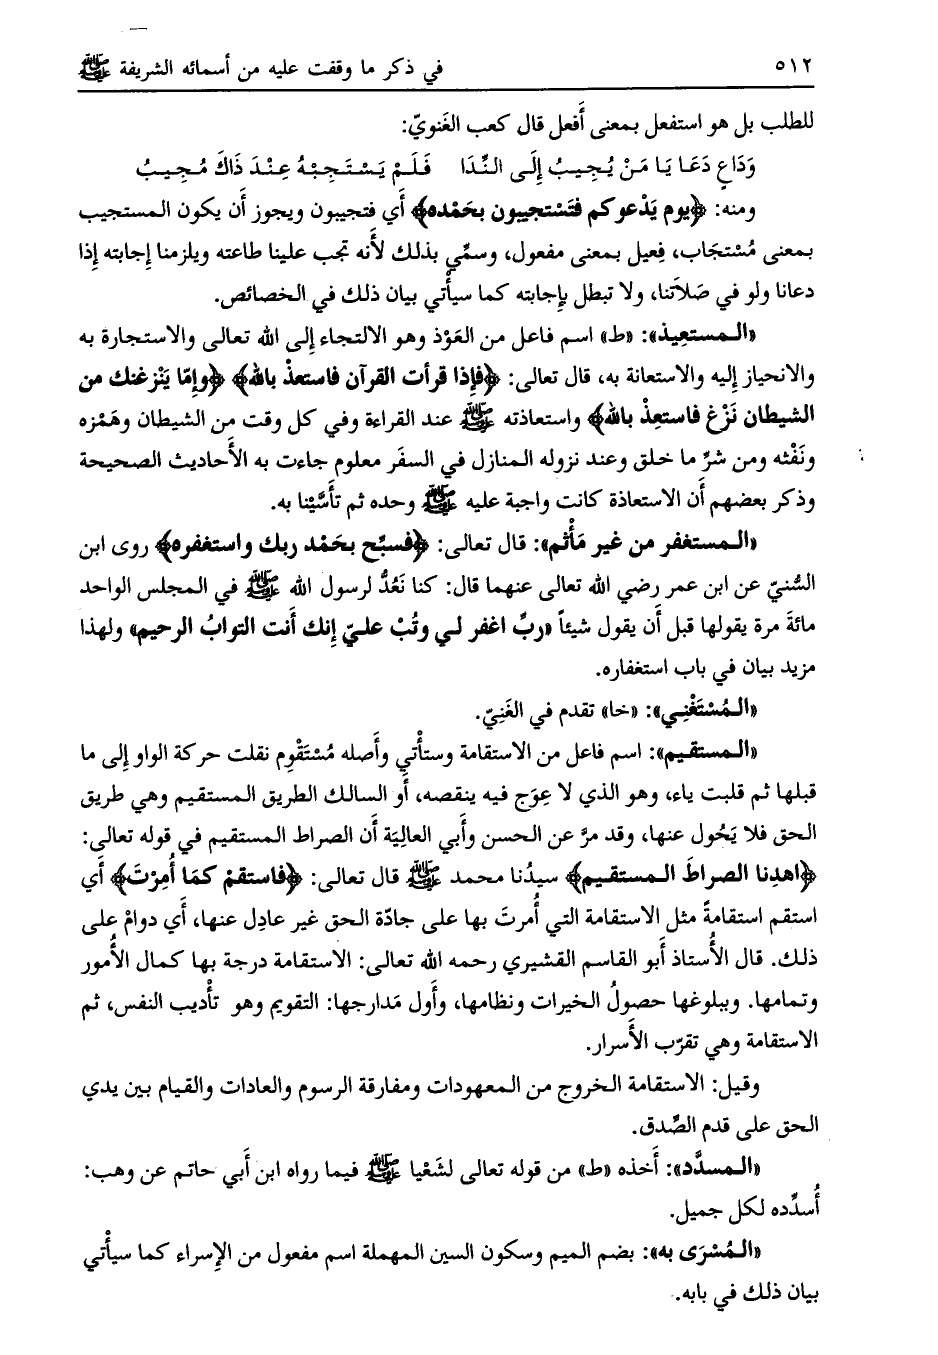 ٥١٢ في ذكر ما وقفت عليه من أسمائه الشريفة ﷺ
للطلب بل هو استفعل بمعنى أَفعل قال كعب الغَنويّ:
وَدَاعٍ دَعَا يَا مَنْ يُجِيبُ إِلَى النِّدَا فَلَمْ يَسْتَجِبْهُ عِنْدَ ذَاكَ مُجِيبُ
ومنه: ﴿يوم يَدْعوكم فتَسْتجيبون بحَمْده﴾ أَي فتجيبون ويجوز أَن يكون المستجيب
بمعنى مُسْتجَاب، فِعيل بمعنى مفعول، وسمِّي بذلك لأَنه تجب علينا طاعته ويلزمنا إِجابته إِذا
دعانا ولو في صَلاَتنا، ولا تبطل بإِجابته كما سيأْتي بيان ذلك في الخصائص.
«المستعيذ»: «ط» اسم فاعل من العَوْذ وهو الالتجاء إِلى الله تعالى والاستجارة به
والانحياز إِليه والاستعانة به، قال تعالى: ﴿فإِذا قرأت القرآن فاستعذْ بالله﴾ ﴿وإِمّا يَنْزغنك من
الشيطان نَزْغ فاستعِذْ بالله﴾ واستعاذته ﷺ عند القراءة وفي كل وقت من الشيطان وهَمْزه
ونَفْثه ومن شرِّ ما خلق وعند نزوله المنازل في السفَر معلوم جاءت به الأَحاديث الصحيحة
وذكر بعضهم أَن الاستعاذة كانت واجبة عليه ﷺ وحده ثم تأَسَّيْنا به.
«المستغفر من غير مَأْثم»: قال تعالى: ﴿فسبِّح بحَمْد ربك واستغفره﴾ روى ابن
السُّنيّ عن ابن عمر رضي الله تعالى عنهما قال: كنا نَعُدُّ لرسول الله ﷺ في المجلس الواحد
مائةَ مرة يقولها قبل أَن يقول شيئاً «ربِّ اغفر لي وتُبْ عليّ إِنك أَنت التوابُ الرحيم» ولهذا
مزيد بيان في باب استغفاره.
«المُسْتَغْنِي»: «خا» تقدم في الغَنِيّ.
«المستقيم»: اسم فاعل من الاستقامة وستأْتي وأَصله مُسْتَقْوِم نقلت حركة الواو إِلى ما
قبلها ثم قلبت ياء، وهو الذي لا عِوَج فيه ينقصه، أَو السالك الطريق المستقيم وهي طريق
الحق فلا يَحُول عنها، وقد مرَّ عن الحسن وأَبي العالِيَة أَن الصراط المستقيم في قوله تعالى:
﴿اهدِنا الصراطَ المستقيم﴾ سيدُنا محمد ﷺ قال تعالى: ﴿فاستقمْ كمَا أُمِرْتَ﴾ أَي
استقم استقامةً مثل الاستقامة التي أُمرتَ بها على جادّة الحق غير عادِل عنها، أَي دوامْ على
ذلك. قال الأُستاذ أَبو القاسم القشيري رحمه الله تعالى: الاستقامة درجة بها كمال الأُمور
وتمامها. وببلوغها حصولُ الخيرات ونظامها، وأَول مَدارجها: التقويم وهو تأْديب النفس، ثم
الاستقامة وهي تقرّب الأَسرار.
وقيل: الاستقامة الخروج من المعهودات ومفارقة الرسوم والعادات والقيام بين يدي
الحق على قدم الصِّدق.
«المسدَّد»: أَخذه «ط» من قوله تعالى لشَعْيا ﷺ فيما رواه ابن أَبي حاتم عن وهب:
أُسدِّده لكل جميل.
«المُسْرَى به»: بضم الميم وسكون السين المهملة اسم مفعول من الإِسراء كما سيأْتي
بيان ذلك في بابه.